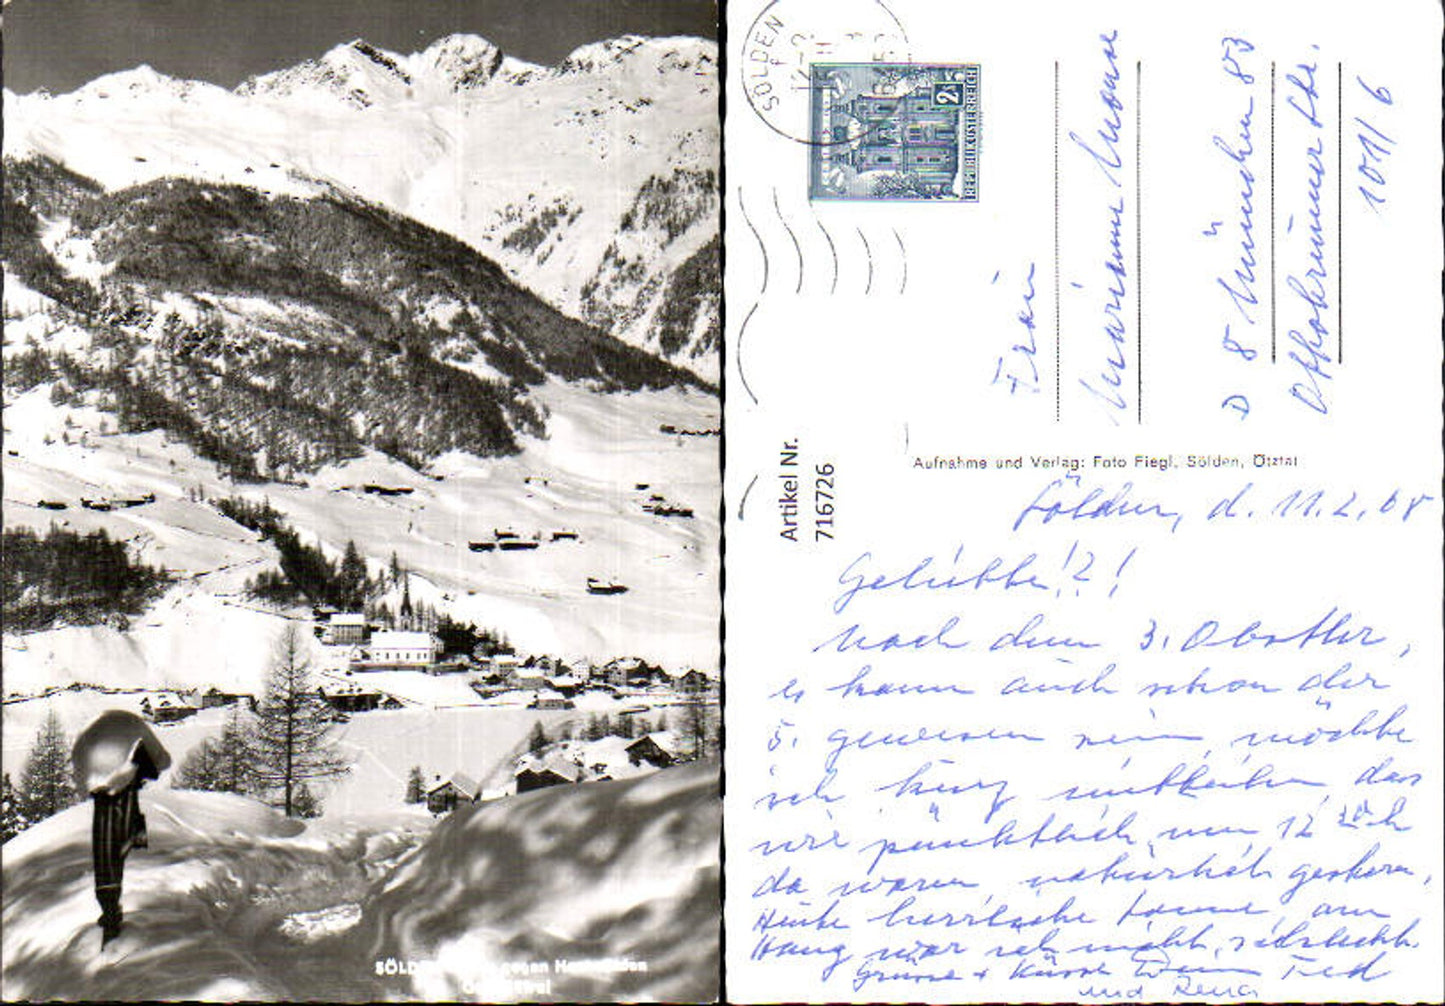 SÖLDEN
2
REPUBLIK ÖSTERREICH
Frau
Marianne
D 8 München 83
Ottobrunner Str.
101/6
Artikel Nr.
716726
Aufnahme und Verlag: Foto Fiegl, Sölden, Ötztal
Sölden, d. 11.2.68
Geliebte!?!
Nach dem 3. Obstler,
es kann auch schon der
5. gewesen sein, möchte
ich kurz mitteilen, das
wir pünktlich um 12
da waren, natürlich gestern.
Heute herrliche Sonne, am
Hang war ich nicht, schlecht.
Grüsse + Küsse Dein Ted
und Rena
SÖLDEN gegen